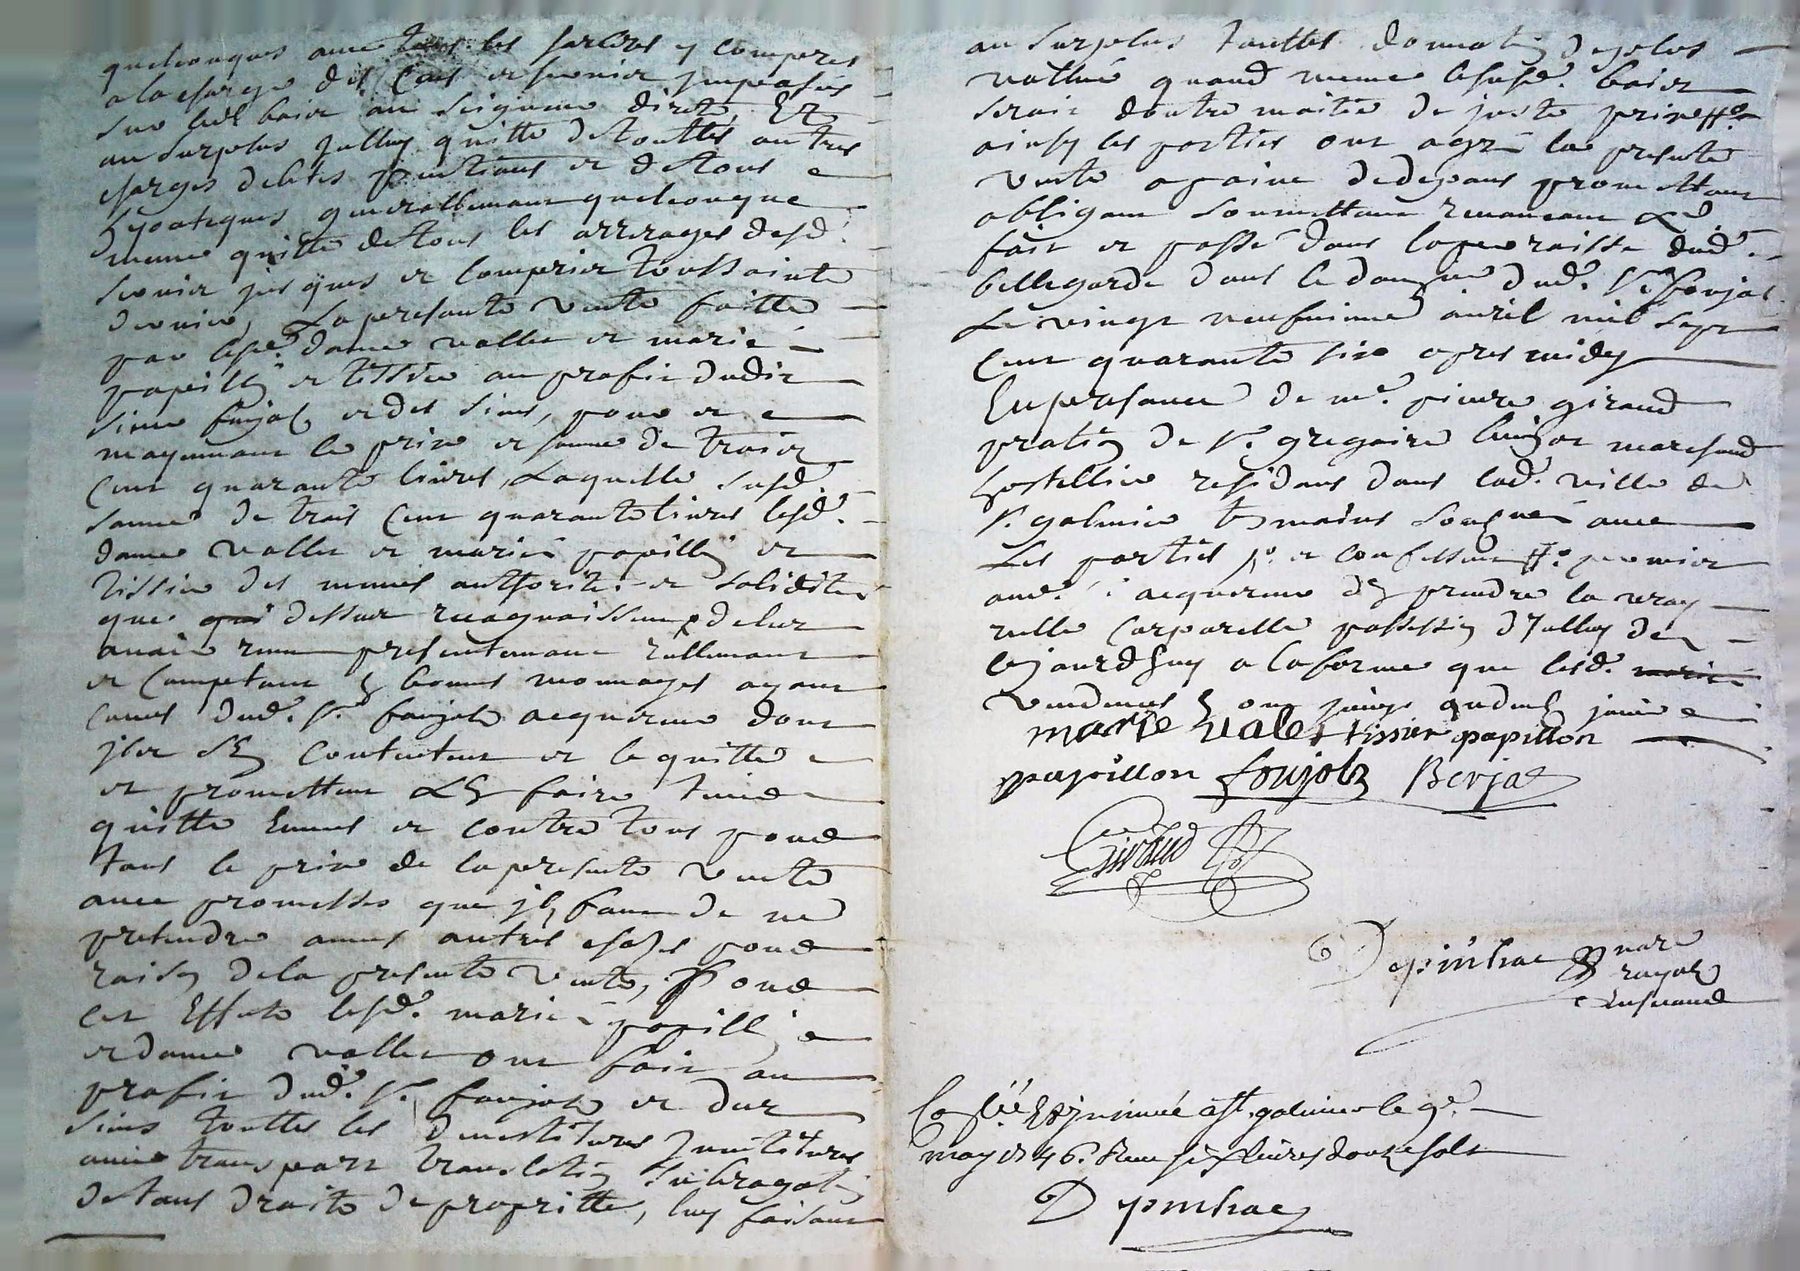 quelconques avec tous les servis y compris
a la charge des cens et servis imposés
sur led. bois au seigneur direct, Et
au surplus jceluy quitte de touttes autres
charges debtes pentions et de tous
hypoteques generallement quelconque
mesme quitte de tous les arrerages desd.
servis jusques et compris toussaints
dernier, La presante vente faitte
par lesd. dame vallet et marie
papillon et tissier au profit dudit
sieur foujols et des siens, pour et
moyennant le prix et somme de trois
cent quarante livres, Laquelle susd.
somme de trois cent quarante livres lesd.
dame vallet et mariés papillon et
tissier des mesmes authorité et solidité
que dessus recognoissent d'elur
avoir receu presentement réellement
et comptant en bonnes monnoyes ayant
cours dud. Sr. foujols acquereur dont
jls s'en contentent et le quitte
et promettent L'en faire tenir
quitte Envers et contre tous pour
tout le prix de la presente vente
avec promesse que jls font de ne
pretendre aucunes autres choses pour
raison de la presente vente, Pour
cet Effet lesd. mariés papillon
et dame vallet ont fait au
profit dud. Sr. foujols et des
siens touttes les devestitures Jnvestitures
avec transport translation subrogation
de tous droits de propriette, luy faisant
au surplus touttes donnation de plus
vallue quand mesme lesusd. bois
serait d'outre moitié de juste prix
ainsy les parties ont agréé la presente
vente a peine de depans promettant
obligant soumettant renonçant &c
fait et passé dans la parroisse dud.
bellegarde dans le domaine dud. Sr. foujols
Le vingt neufvieme avril mil sept
cent quarante six apres midy
En presance de me. pierre giraud
praticien de Sr. gregoire marchand
hostellier residans dans lad. ville de
St. galmier temoins soussignés avec
Les parties et confesseur premier
aud. acquereur d'en prendre la vray
reelle corporelle possession d'jcelluy de
cejourd'huy a la forme que lesd.
vendeurs en ont jouy ou deub jouir
marie vale tissier papillon
papillon foujols Berjat
Giraud
Depinhac nore
royal
Controllé Et Jnsinué a St. galmier le 9e.
may 1746. Receu six livres douze sols
Depinhac